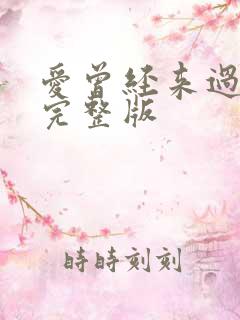 愛曾经来過
完整版
時時刻刻